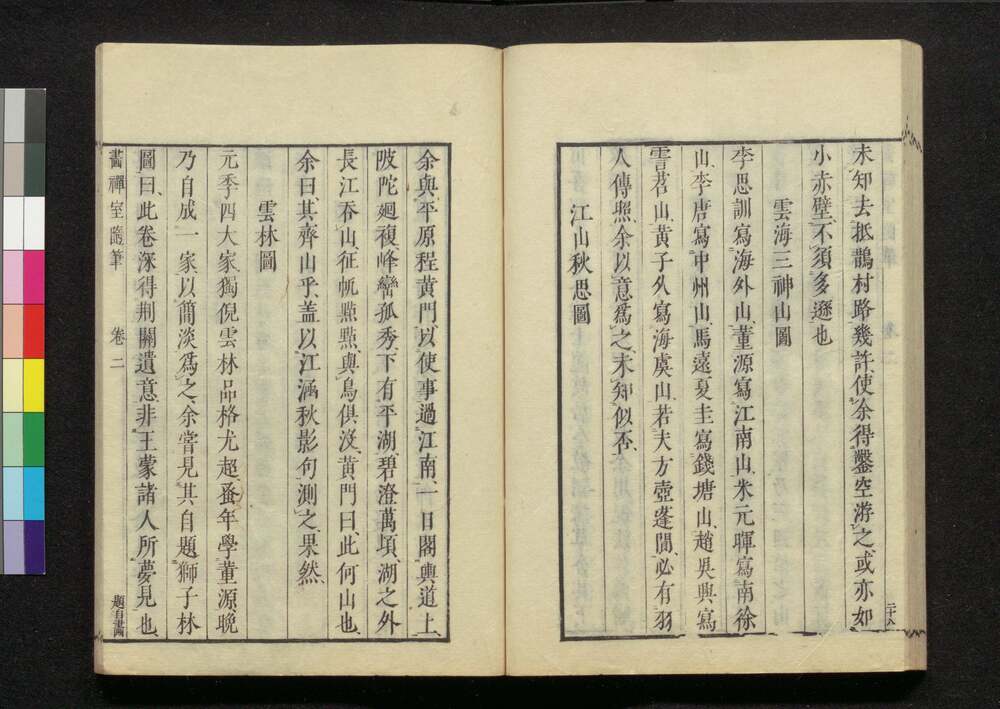 未知去抵鵲村路幾許、使余得鑿空游之、或亦如
小赤壁、不須多遜也
雲海三神山圖
李思訓寫海外山、董源寫江南山、米元暉寫南徐
山、李唐寫中州山、馬遠夏圭寫錢塘山、趙吳興寫
霅苕山、黃子久寫海虞山、若夫方壺蓬閬、必有羽
人傳照、余以意爲之、未知似不、
江山秋思圖
二十八
余與平原程黃門、以使事過江南、一日閣輿道上、
陂陀廻複、峰巒孤秀、下有平湖、碧澄萬頃、湖之外
長江吞山、征帆點點、與鳥俱沒、黃門曰、此何山也、
余曰、其齊山乎、蓋以江涵秋影句測之、果然、
雲林圖
元季四大家、獨倪雲林品格尤超、蚤年學董源、晚
乃自成一家、以簡淡爲之、余嘗見其自題獅子林
圖曰、此卷深得荆關遺意、非王蒙諸人所夢見也、
畫禪室隨筆 卷二 題自畫